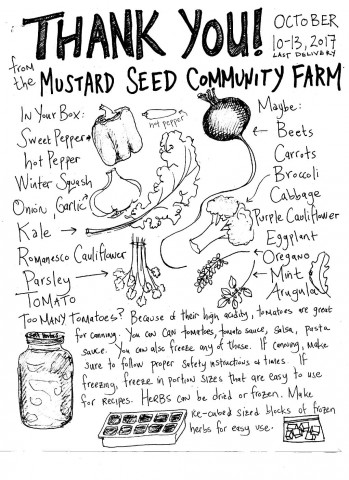 THANK YOU!
OCTOBER
10-13, 2017
LAST DELIVERY
from
the MUSTARD SEED COMMUNITY FARM
In Your Box:
Sweet Pepper
hot Pepper
Winter Squash
Onion, Garlic
Kale
Romanesco Cauliflower
Parsley
TOMATO
hot pepper
Maybe:
Beets
Carrots
Broccoli
Cabbage
Purple Cauliflower
Eggplant
Oregano
Mint
Arugula
TOO MANY TOMATOES? Because of their high acidity, tomatoes are great
for canning. You can can tomatoes, tomato sauce, salsa, pasta
sauce. You can also freeze any of these. If canning, make
sure to follow proper safety instructions & times. If
freezing, freeze in portion sizes that are easy to use
for recipes. HERBS can be dried or frozen. Make
ice-cubed sized blocks of frozen
herbs for easy use.